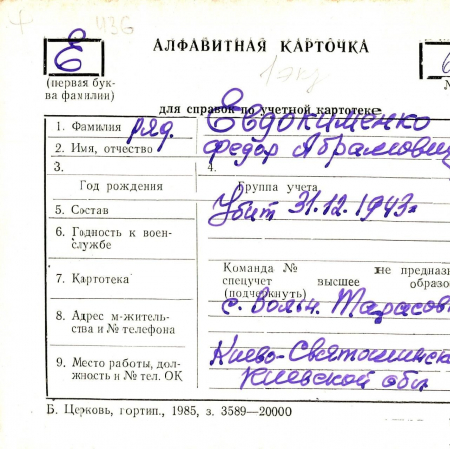 И36
Е
АЛФАВИТНАЯ КАРТОЧКА
(первая бук-
ва фамилии)
для справок по учетной картотеке
1. Фамилия ряд. Евдокименко
2. Имя, отчество Федор Абрамович
3.
4.
Год рождения
Группа учета
5. Состав Убит 31.12.1943г
6. Годность к воен-
службе
Команда № не предназ
7. Картотека
спецучет высшее образо
(подчеркнуть)
8. Адрес м-житель-
ства и № телефона
с. Вольн. Тарасов
9. Место работы, дол-
жность и № тел. ОК
Киево-Святошинск
Киевской обл
Б. Церковь, гортип., 1985, з. 3589—20000